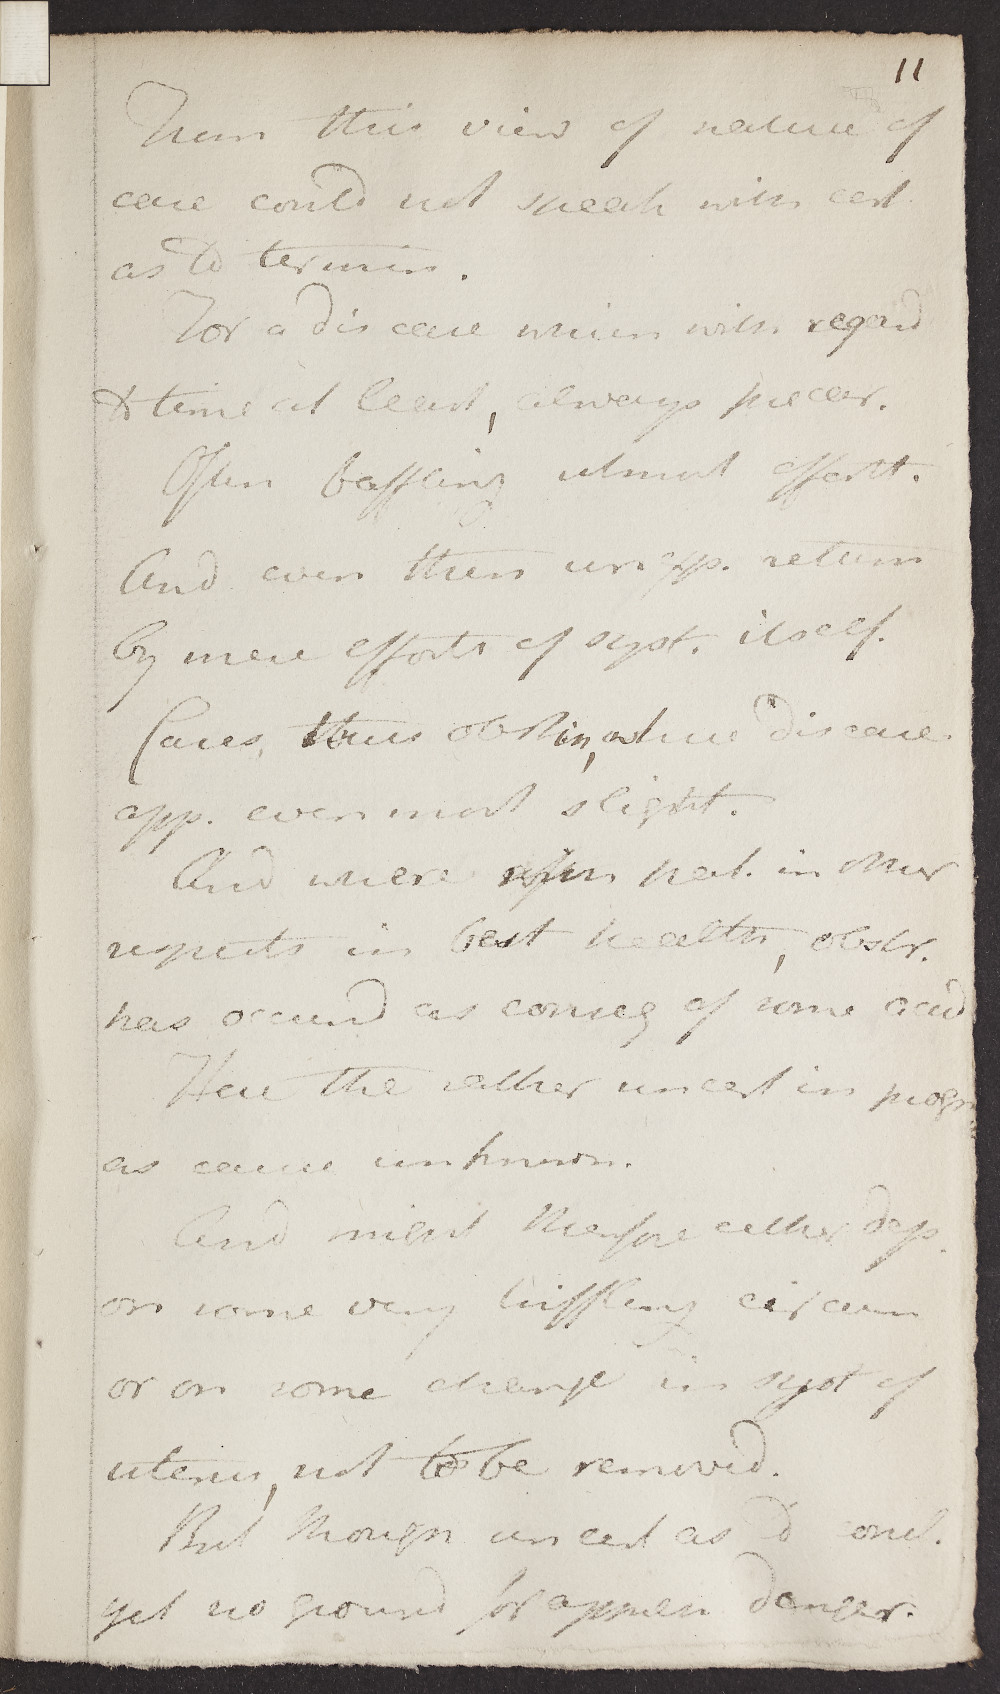 11
From this view of nature of
case could not speak with cert
as to termin.
For a disease which with regard
to time at least, always precar.
Often baffling utmost effort.
And even then unexp. return
by mere efforts of syst. itself.
Cases, thus obstin, where disease
app. even most slight.
And where often pat. in other
respects in best health, obstr.
has occurd as conseq of some acid
Here the rather uncert in progn
as cause unknown.
And might therefore either dep.
on some very triffling circum
or on some change in syst of
uterus, not to be removed.
But though uncert as to concl.
yet no ground for appreh danger.